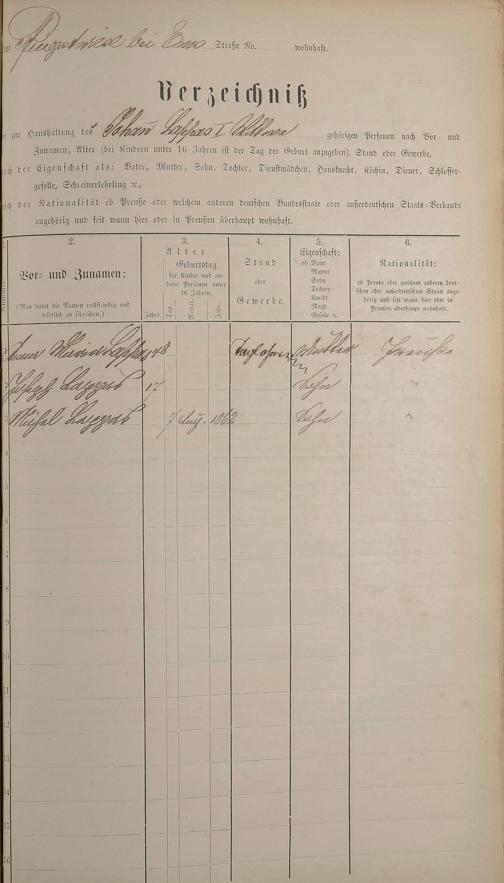 bei Ems Straße No. wohnhaft.
Verzeichniß
zur Haushaltung des Johann Lappas I Witwe gehörigen Personen nach Vor- und
Zunamen, Alter (bei Kindern unter 16 Jahren ist der Tag der Geburt anzugeben), Stand oder Gewerbe,
nach der Eigenschaft als: Vater, Mutter, Sohn, Tochter, Dienstmädchen, Hausknecht, Köchin, Diener, Schlosser-
geselle, Schreinerlehrling ꝛc.,
nach der Nationalität ob Preuße oder welchem anderen deutschen Bundesstaate oder außerdeutschen Staats-Verbande
angehörig und seit wann hier oder in Preußen überhaupt wohnhaft.
2.
Vor- und Zunamen:
(Man bittet die Namen vollständig und
leserlich zu schreiben.)
3.
Alter
Jahre.
Geburtstag
der Kinder und an-
derer Personen unter
16 Jahren.
Tag. Monat. Jahr.
4.
Stand
oder
Gewerbe.
5.
Eigenschaft:
ob Vater
Mutter
Sohn
Tochter
Knecht
Magd
Geselle ꝛc.
6.
Nationalität:
ob Preuße oder welchem anderen deut-
schen oder außerdeutschen Staate ange-
hörig und seit wann hier oder in
Preußen überhaupt wohnhaft.
Anna Maria Lappas 48 Mutter Preuße
Joseph Lappas 17 Sohn "
Michel Lappas 7 Aug. 1862 Sohn "
4
5
6
7
8
9
10
11
12
13
14
15
16